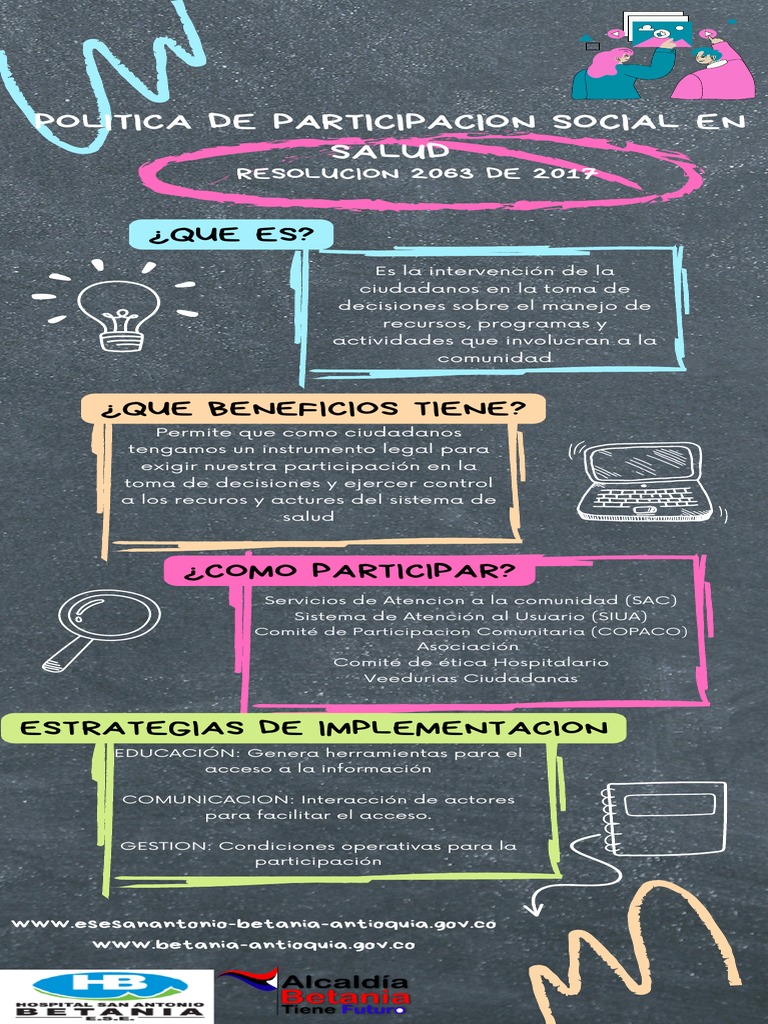 POLITICA DE PARTICIPACION SOCIAL EN
SALUD
RESOLUCION 2063 DE 2017
¿QUE ES?
Es la intervención de la
ciudadanos en la toma de
decisiones sobre el manejo de
recursos, programas y
actividades que involucran a la
comunidad
¿QUE BENEFICIOS TIENE?
Permite que como ciudadanos
tengamos un instrumento legal para
exigir nuestra participación en la
toma de decisiones y ejercer control
a los recuros y actures del sistema de
salud
¿COMO PARTICIPAR?
Servicios de Atencion a la comunidad (SAC)
Sistema de Atención al Usuario (SIUA)
Comité de Participacion Comunitaria (COPACO)
Asociación
Comité de ética Hospitalario
Veedurias Ciudadanas
ESTRATEGIAS DE IMPLEMENTACION
EDUCACIÓN: Genera herramientas para el
acceso a la información
COMUNICACION: Interacción de actores
para facilitar el acceso.
GESTION: Condiciones operativas para la
participación
www.esesanantonio-betania-antioquia.gov.co
www.betania-antioquia.gov.co
HB
HOSPITAL SAN ANTONIO
BETANIA
E.S.E.
Alcaldía
Betania
Tiene Futuro